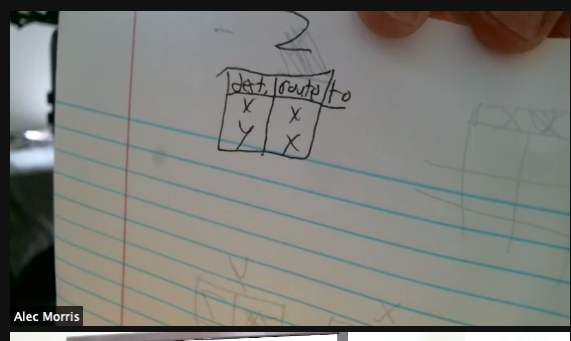 2
dest. route to
X X
Y X
Y
X
Alec Morris